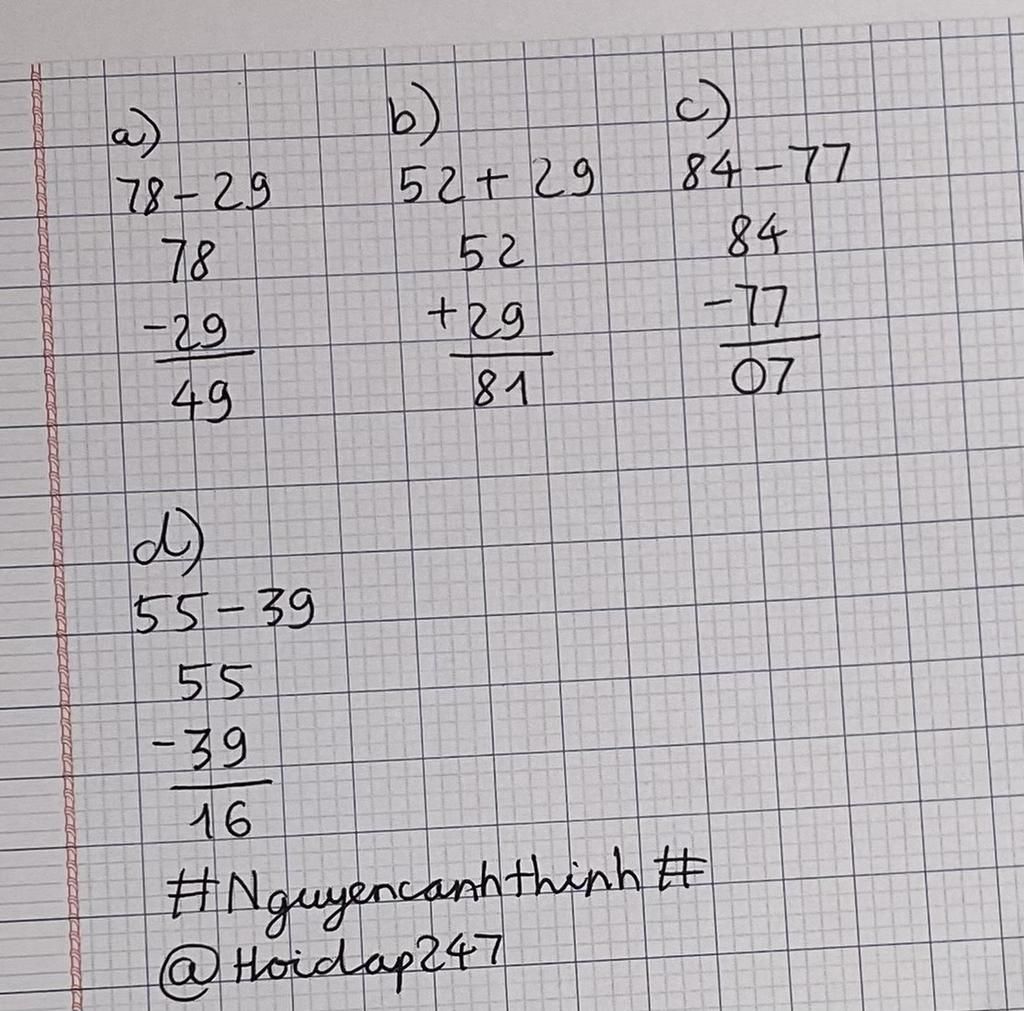 a)
78-29
78
-29
49
b)
52+29
52
+29
81
c)
84-77
84
-77
07
d)
55-39
55
-39
16
#Nguyencanhthinh#
@Hoidap247